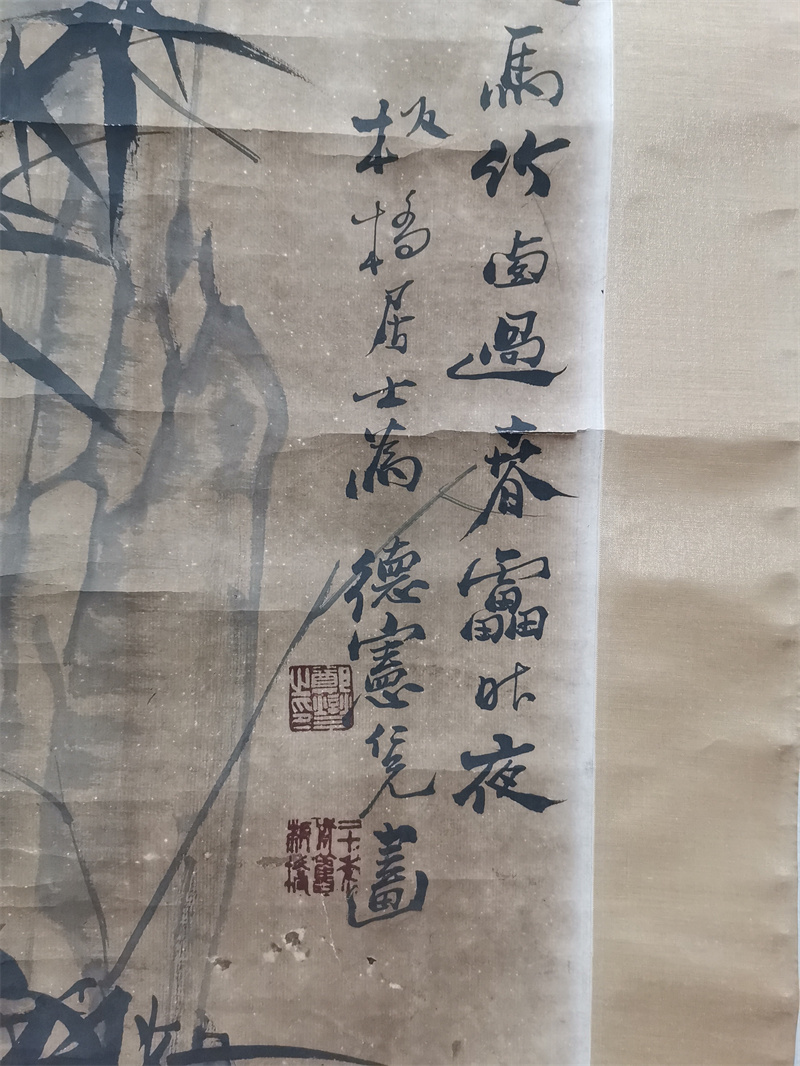 馬竹卥過春靁昨夜
板橋居士為德憲仁兄畫
鄭燮之印
二十年前舊板橋